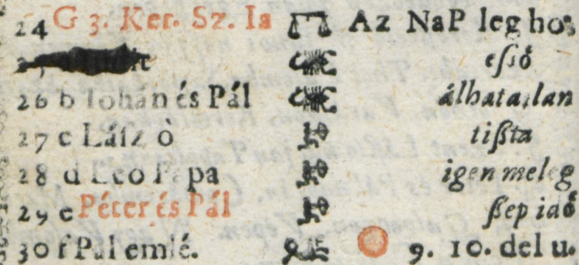 24 G 3. Ker. Sz. Ia Az NaP leg hos
eßiő
26 b Iohán és Pál álhatatlan
27 c Lász ò tißta
28 d Leo Papa igen meleg
29 e Péter és Pál ßep idő
30 f Pal emlé. 9. 10. del u.